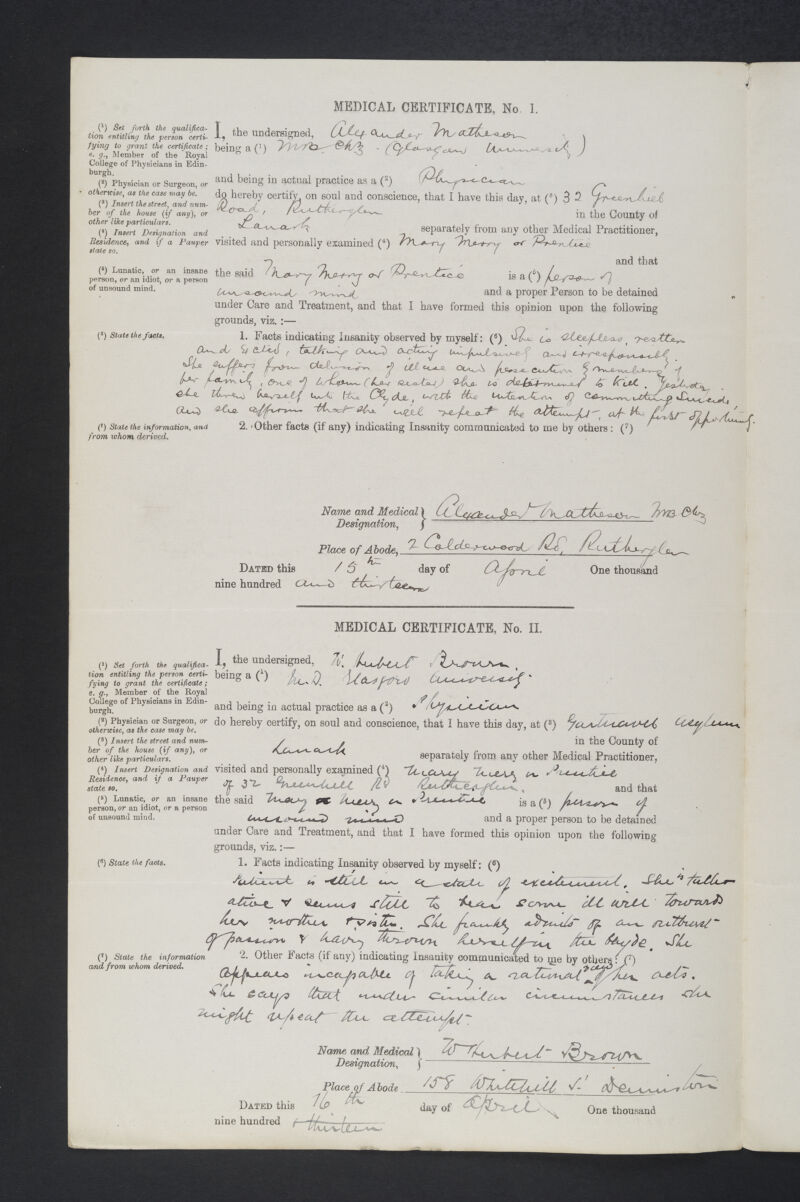 MEDICAL CERTIFICATE, No. I.
(¹) Set forth the qualifica-
tion entitling the person certi-
fying to grant the certificate;
e. g., Member of the Royal
College of Physicians in Edin-
burgh.
(²) Physician or Surgeon, or
otherwise, as the case may be.
(³) Insert the street, and num-
ber of the house (if any), or
other like particulars.
(⁴) Insert Designation and
Residence, and if a Pauper
state so.
(⁵) Lunatic, or an insane
person, or an idiot, or a person
of unsound mind.
I, the undersigned, Alexander Matheson
being a (¹) M.B. Ch.B. (Glasgow University)
and being in actual practice as a (²) Physician
do hereby certify, on soul and conscience, that I have this day, at (³) 32 Greenhill
Road, Rutherglen in the County of
Lanark separately from any other Medical Practitioner,
visited and personally examined (⁴) Mary Merry or Prentice
and that
the said Mary Merry or Prentice is a (⁵) person of
unsound mind and a proper Person to be detained
under Care and Treatment, and that I have formed this opinion upon the following
grounds, viz. :—
(⁶) State the facts.
1. Facts indicating Insanity observed by myself: (⁶) She is sleepless, restless
and excited, talking and acting impulsively and irresponsibly.
She suffers from delusion of illuse and persecution by members of
her family, one of whom (her sister) she is determined to kill. Yesterday
she threw herself into the Clyde, with the intention of committing Suicide,
and she affirms that she will repeat the attempt, at the first opportunity.
(⁷) State the information, and
from whom derived.
2. Other facts (if any) indicating Insanity communicated to me by others: (⁷)
Name and Medical Designation, Alexander Matheson MB ChB
Place of Abode, 2 Calderwood Rd, Rutherglen
DATED this 15th day of April One thousand
nine hundred and thirteen
MEDICAL CERTIFICATE, No. II.
(¹) Set forth the qualifica-
tion entitling the person certi-
fying to grant the certificate;
e. g., Member of the Royal
College of Physicians in Edin-
burgh.
(²) Physician or Surgeon, or
otherwise, as the case may be.
(³) Insert the street and num-
ber of the house (if any), or
other like particulars.
(⁴) Insert Designation and
Residence, and if a Pauper
state so.
(⁵) Lunatic, or an insane
person, or an idiot, or a person
of unsound mind.
I, the undersigned, W. Hubert Brown.
being a (¹) M.D. Glasgow University
and being in actual practice as a (²) Physician
do hereby certify, on soul and conscience, that I have this day, at (³) Gartnavel Asylum
in the County of
Lanark separately from any other Medical Practitioner,
visited and personally examined (⁴) Mary Merry or Prentice
of 32 Greenhill Rd Rutherglen. and that
the said Mary Merry or Prentice is a (⁵) person of
unsound mind and a proper person to be detained
under Care and Treatment, and that I have formed this opinion upon the following
grounds, viz. :—
(⁶) State the facts.
1. Facts indicating Insanity observed by myself: (⁶)
Patient is still in a state of excitement. She is talk-
ative & seems still to bear some ill will towards
her mother & sister. She frankly admits of an outburst
of passion & having thrown herself in the Clyde. She
(⁷) State the information
and from whom derived.
2. Other Facts (if any) indicating Insanity communicated to me by others: (⁷)
appears incapable of taking a rational view of her acts.
She says that under similar circumstances she
might repeat the attempt.
Name and Medical Designation, W Hubert Brown
Place of Abode 158 Whitehill St Dennistoun
DATED this 16th day of April One thousand
nine hundred & thirteen